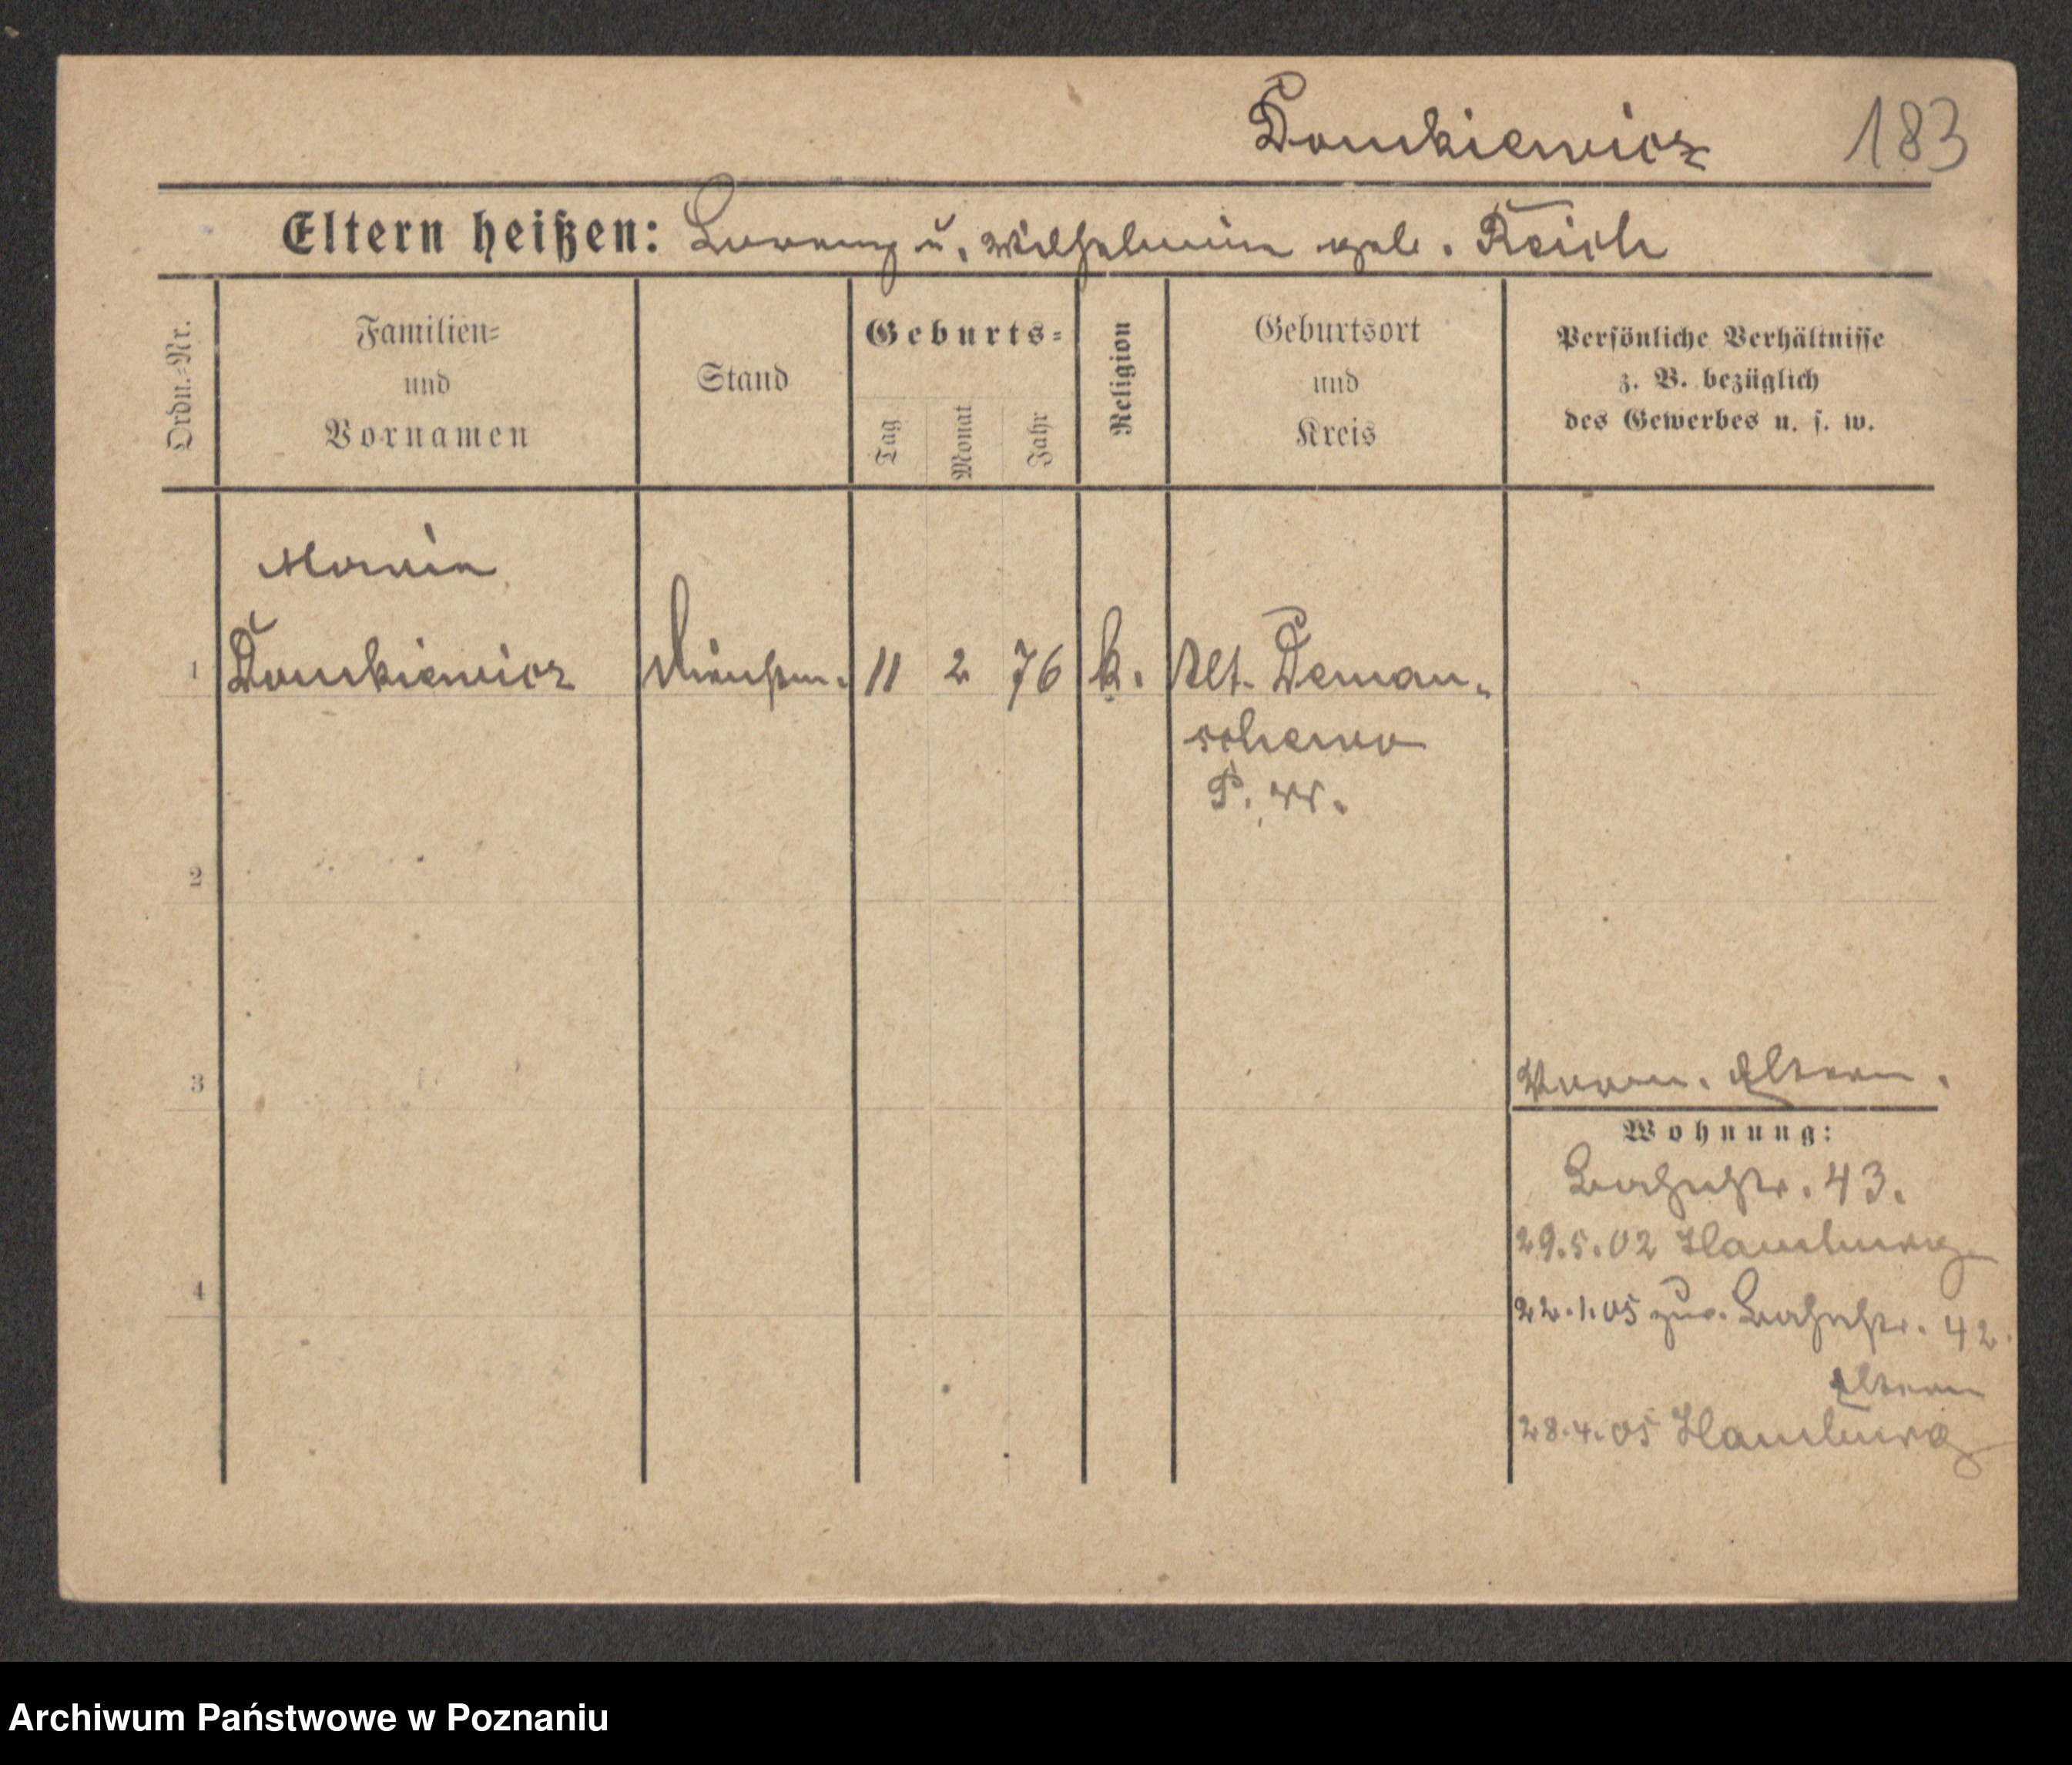 Domkiewicz 183
Eltern heißen: Lorenz u. Wilhelmine geb. Reich
Ordn.-Nr.
Familien-
und
Vornamen
Stand
Geburts-
Tag
Monat
Jahr
Religion
Geburtsort
und
Kreis
Persönliche Verhältnisse
z. B. bezüglich
des Gewerbes u. s. w.
Maria
1 Domkiewicz 11 2 76 k. Alt. Deman-
schewo
P. W.
2
3
4
Eltern.
Wohnung:
Bahnstr. 43.
29.5.02 Hamburg
22.1.05 zur. Bahnstr. 42.
Eltern
28.4.05 Hamburg
Archiwum Państwowe w Poznaniu